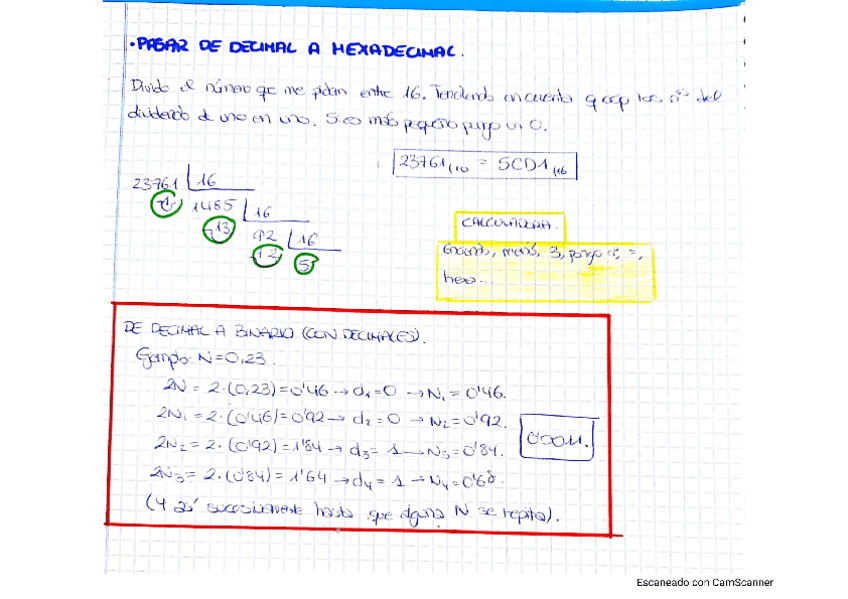 • PASAR DE DECIMAL A HEXADECIMAL.
Divido el número que me pidan entre 16. Teniendo en cuenta q cojo los nºs del
dividendo de uno en uno. Si es más pequeño pongo un 0.
23761(10 = 5CD1(16
23761 16
1 1485 16
13 92 16
12 5
CALCULADORA.
Enciendo, menú, 3, pongo nº, =,
hexa...
DE DECIMAL A BINARIO (CON DECIMALES).
Ejemplo: N=0,23.
2N = 2·(0,23)=0'46→d₁=0 →N₁=0'46.
2N₁ = 2·(0'46)=0'92→d₂=0 →N₂=0'92.
2N₂ = 2·(0'92)=1'84→d₃=1→N₃=0'84.
0'0011.
2N₃ = 2·(0'84)=1'64→d₄=1→N₄=0'68.
(Y así sucesivamente hasta que alguna N se repita).
Escaneado con CamScanner